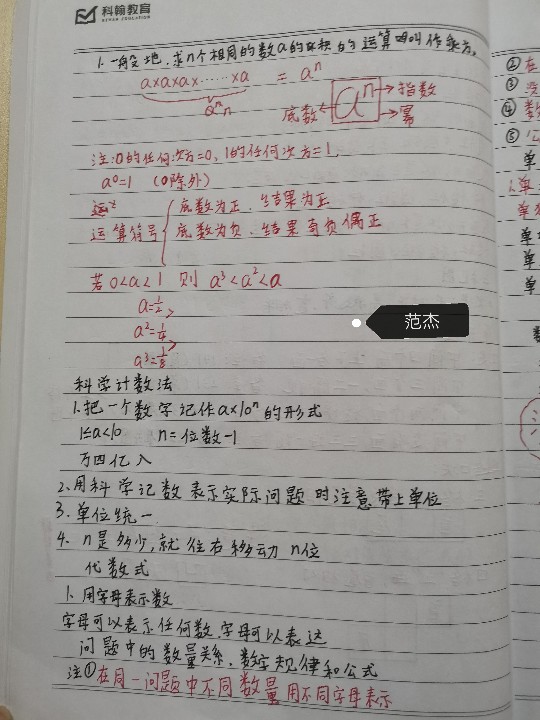 科翰教育
KEHAN EDUCATION
1.一般地.求n个相同的数a的乘积的运算叫作乘方。
a×a×a×……×a = aⁿ
n
底数 aⁿ 指数
幂
注:0的任何次方=0, 1的任何次方=1.
a⁰=1 (0除外)
运算符号
底数为正、结果为正
底数为负、结果奇负偶正
若0<a<1 则 a³<a²<a
a=1/2
a²=1/4
a³=1/8
范杰
科学计数法
1.把一个数字记作a×10ⁿ的形式
1≤a<10 n=位数-1
万四亿八
2.用科学记数表示实际问题时注意带上单位
3.单位统一
4. n是多少,就往右移动n位
代数式
1.用字母表示数
字母可以表示任何数,字母可以表达
问题中的数量关系、数字规律和公式
注①在同一问题中不同数量用不同字母表示
② 在
③
④ 数
⑤
单
1.单
单
单
单
单
数